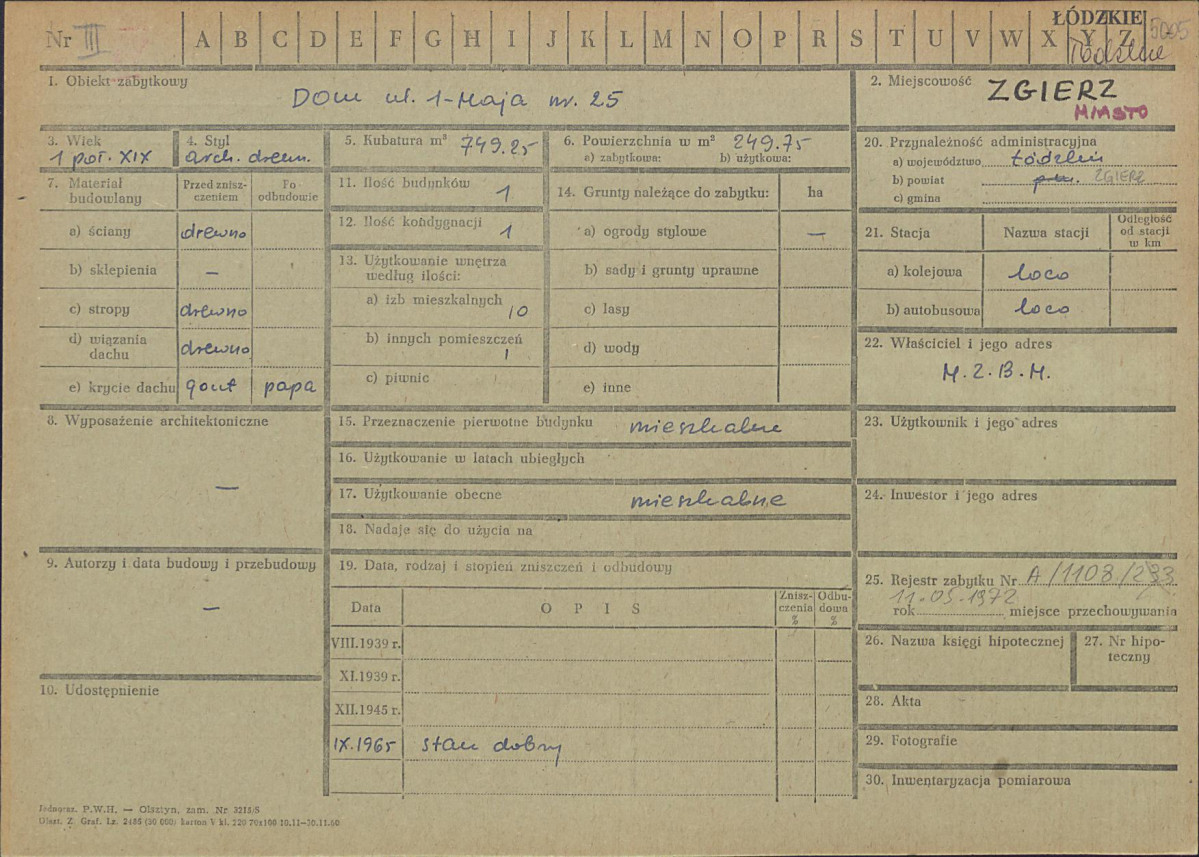 Nr III
A B C D E F G H I J K L M N O P R S T U V W X Y Z
ŁÓDZKIE
5005
1. Obiekt zabytkowy
Dom ul. 1-Maja nr. 25
2. Miejscowość ZGIERZ
MIASTO
3. Wiek
1 poł. XIX
4. Styl
arch. drewn.
5. Kubatura m³ 749.25
6. Powierzchnia w m² 249.75
a) zabytkowa: b) użytkowa:
20. Przynależność administracyjna
a) województwo łódzkie
b) powiat ZGIERZ
c) gmina
7. Materiał budowlany
Przed zniszczeniem
Po odbudowie
a) ściany drewno
b) sklepienia —
c) stropy drewno
d) wiązania dachu drewno
e) krycie dachu gont papa
11. Ilość budynków 1
12. Ilość kondygnacji 1
13. Użytkowanie wnętrza według ilości:
a) izb mieszkalnych 10
b) innych pomieszczeń 1
c) piwnic
14. Grunty należące do zabytku: ha
a) ogrody stylowe —
b) sady i grunty uprawne
c) lasy
d) wody
e) inne
21. Stacja Nazwa stacji Odległość od stacji w km
a) kolejowa loco
b) autobusowa loco
22. Właściciel i jego adres
M.Z.B.M.
8. Wyposażenie architektoniczne
—
15. Przeznaczenie pierwotne budynku mieszkalne
16. Użytkowanie w latach ubiegłych
17. Użytkowanie obecne mieszkalne
18. Nadaje się do użycia na
23. Użytkownik i jego adres
24. Inwestor i jego adres
9. Autorzy i data budowy i przebudowy
—
10. Udostępnienie
19. Data, rodzaj i stopień zniszczeń i odbudowy
Data OPIS Zniszczenia % Odbudowa %
VIII.1939 r.
XI.1939 r.
XII.1945 r.
IX.1965 stan dobry
25. Rejestr zabytku Nr A/1108/233
11.05.1972
rok miejsce przechowywania
26. Nazwa księgi hipotecznej
27. Nr hipoteczny
28. Akta
29. Fotografie
30. Inwentaryzacja pomiarowa
P.W.H. — Olsztyn, zam. Nr 3215/S
Olszt. Z. Graf. Lz. 2486 (30 000) karton V kl. 220 70x100 10.11—30.11.60